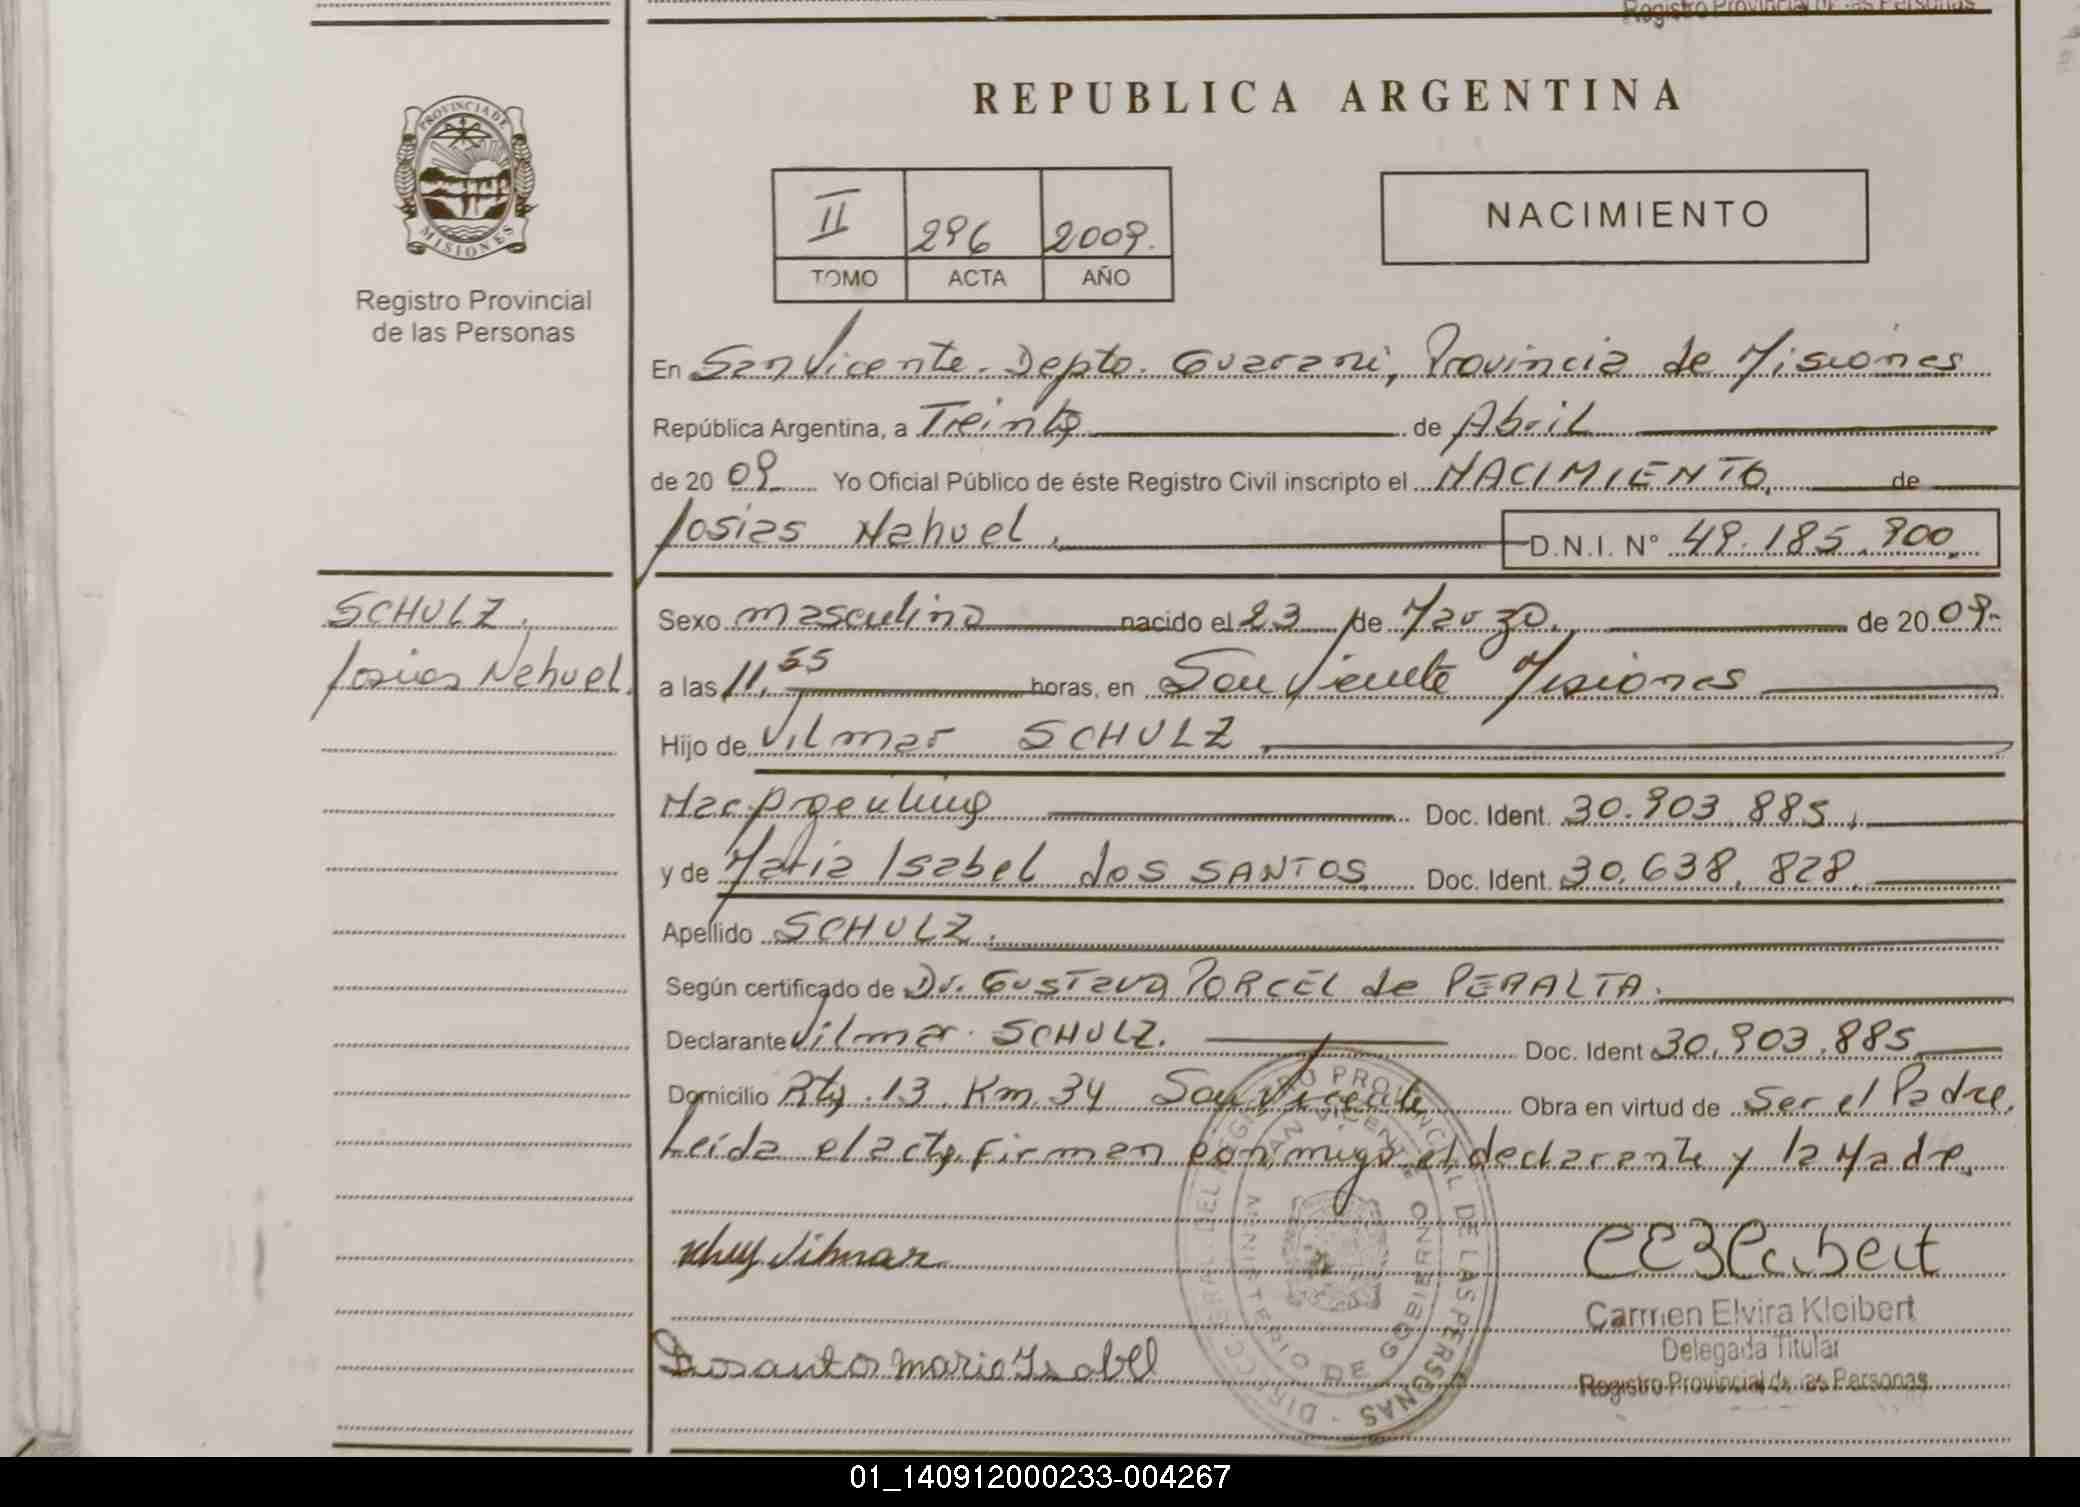 Registro Provincial de las Personas
REPUBLICA ARGENTINA
PROVINCIA DE
MISIONES
Registro Provincial
de las Personas
II 296 2009.
TOMO ACTA AÑO
NACIMIENTO
En San Vicente. Depto. Guarani, Provincia de Misiones
República Argentina, a Treinta de Abril
de 2009 Yo Oficial Público de éste Registro Civil inscripto el NACIMIENTO, de
Josias Nahuel. D.N.I. N° 49.185.900
SCHULZ.
Josias Nahuel.
Sexo masculino nacido el 23 de Marzo. de 2009.
a las 11,55 horas, en San Vicente Misiones
Hijo de Vilmar SCHULZ.
Nac. Argentina Doc. Ident. 30.903.885.
y de Maria Isabel dos SANTOS Doc. Ident. 30.638.828.
Apellido SCHULZ.
Según certificado de Dr. Gustavo PORCEL de PERALTA.
Declarante Vilmar SCHULZ. Doc. Ident 30.903.885
Domicilio Rta. 13. Km. 34 San Vicente Obra en virtud de Ser el Padre.
Leida el acta, firman conmigo el declarante y la Madre.
Vilmar
Dosantos Maria Isabel
Carmen Elvira Kleibert
Delegada Titular
Registro Provincial de las Personas
DIREC. GERAL. DEL REGISTRO PROVINCIAL DE LAS PERSONAS
SAN VICENTE
MINISTERIO DE GOBIERNO
01_140912000233-004267